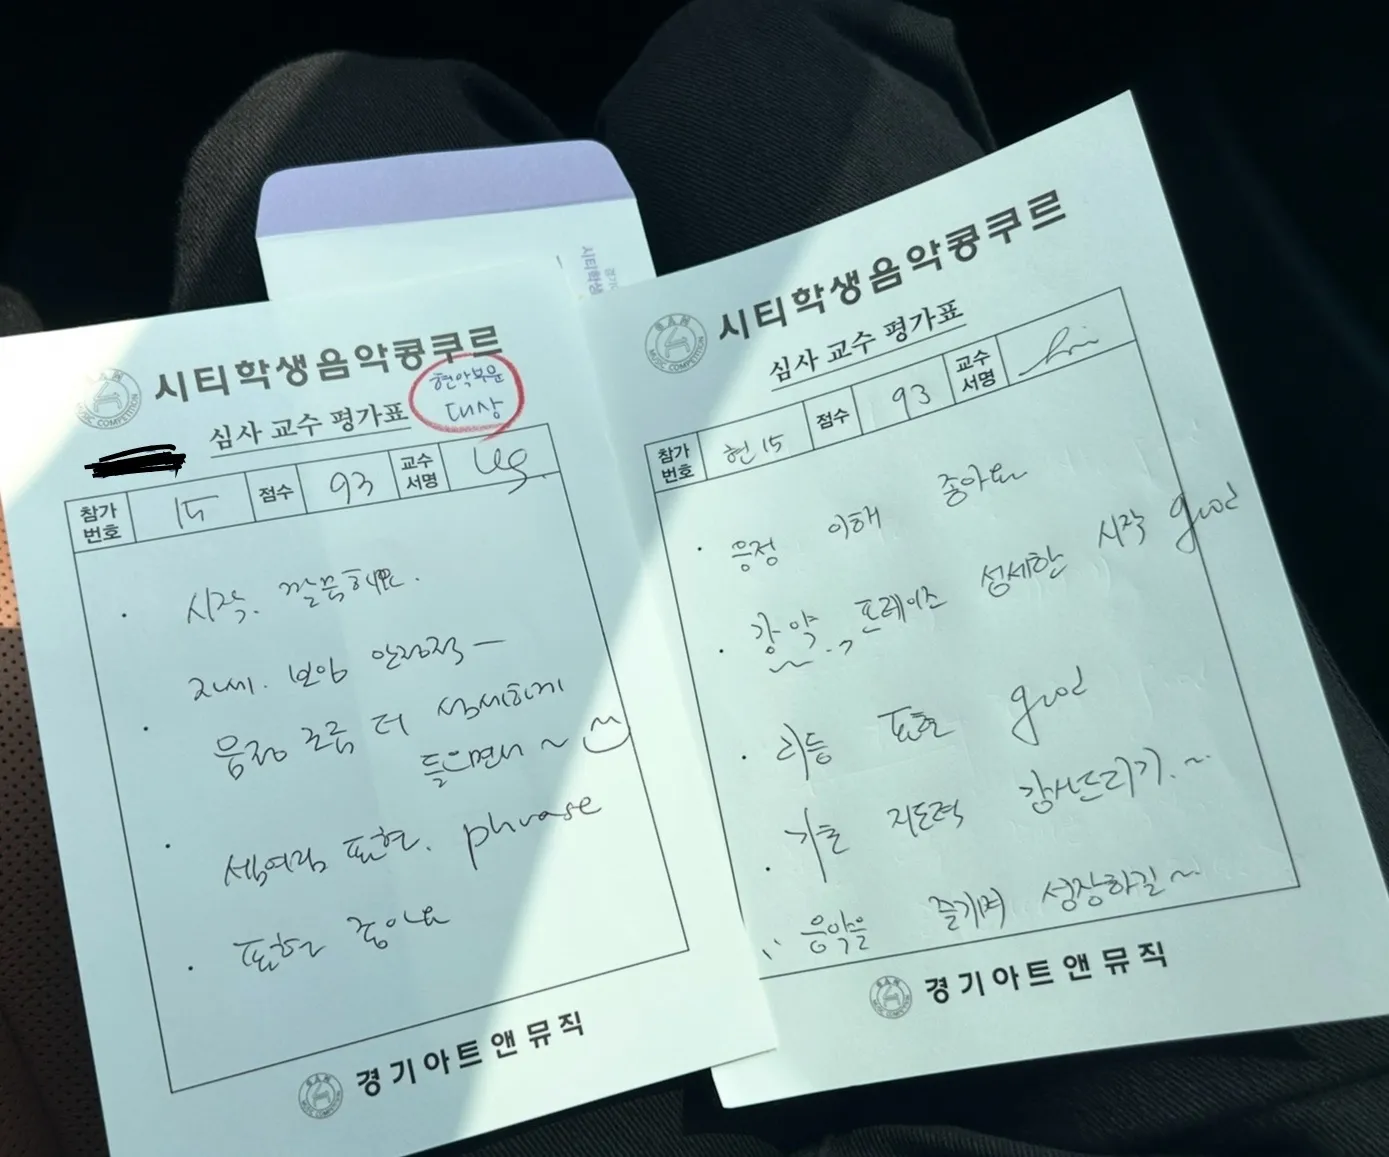 시티학생음악콩쿠르
현악부문
대상
심사 교수 평가표
참가
번호
15
점수
93
교수
서명
· 시작. 깔끔해요.
· 자세. 보잉 안정적 —
음정 흐름 더 섬세하게
들으면서~
· 셈여림 표현. phrase
· 표현 좋아요
경기아트앤뮤직
시티학생
시티학생음악콩쿠르
심사 교수 평가표
참가
번호
현15
점수
93
교수
서명
· 음정 이해 좋아요
· 강약, 프레이즈 섬세한 시작 good
· 리듬 표현 good
· 기술 지도력 감사드리기.~
음악을 즐기며 성장하길~
경기아트앤뮤직
MUSIC COMPETITION